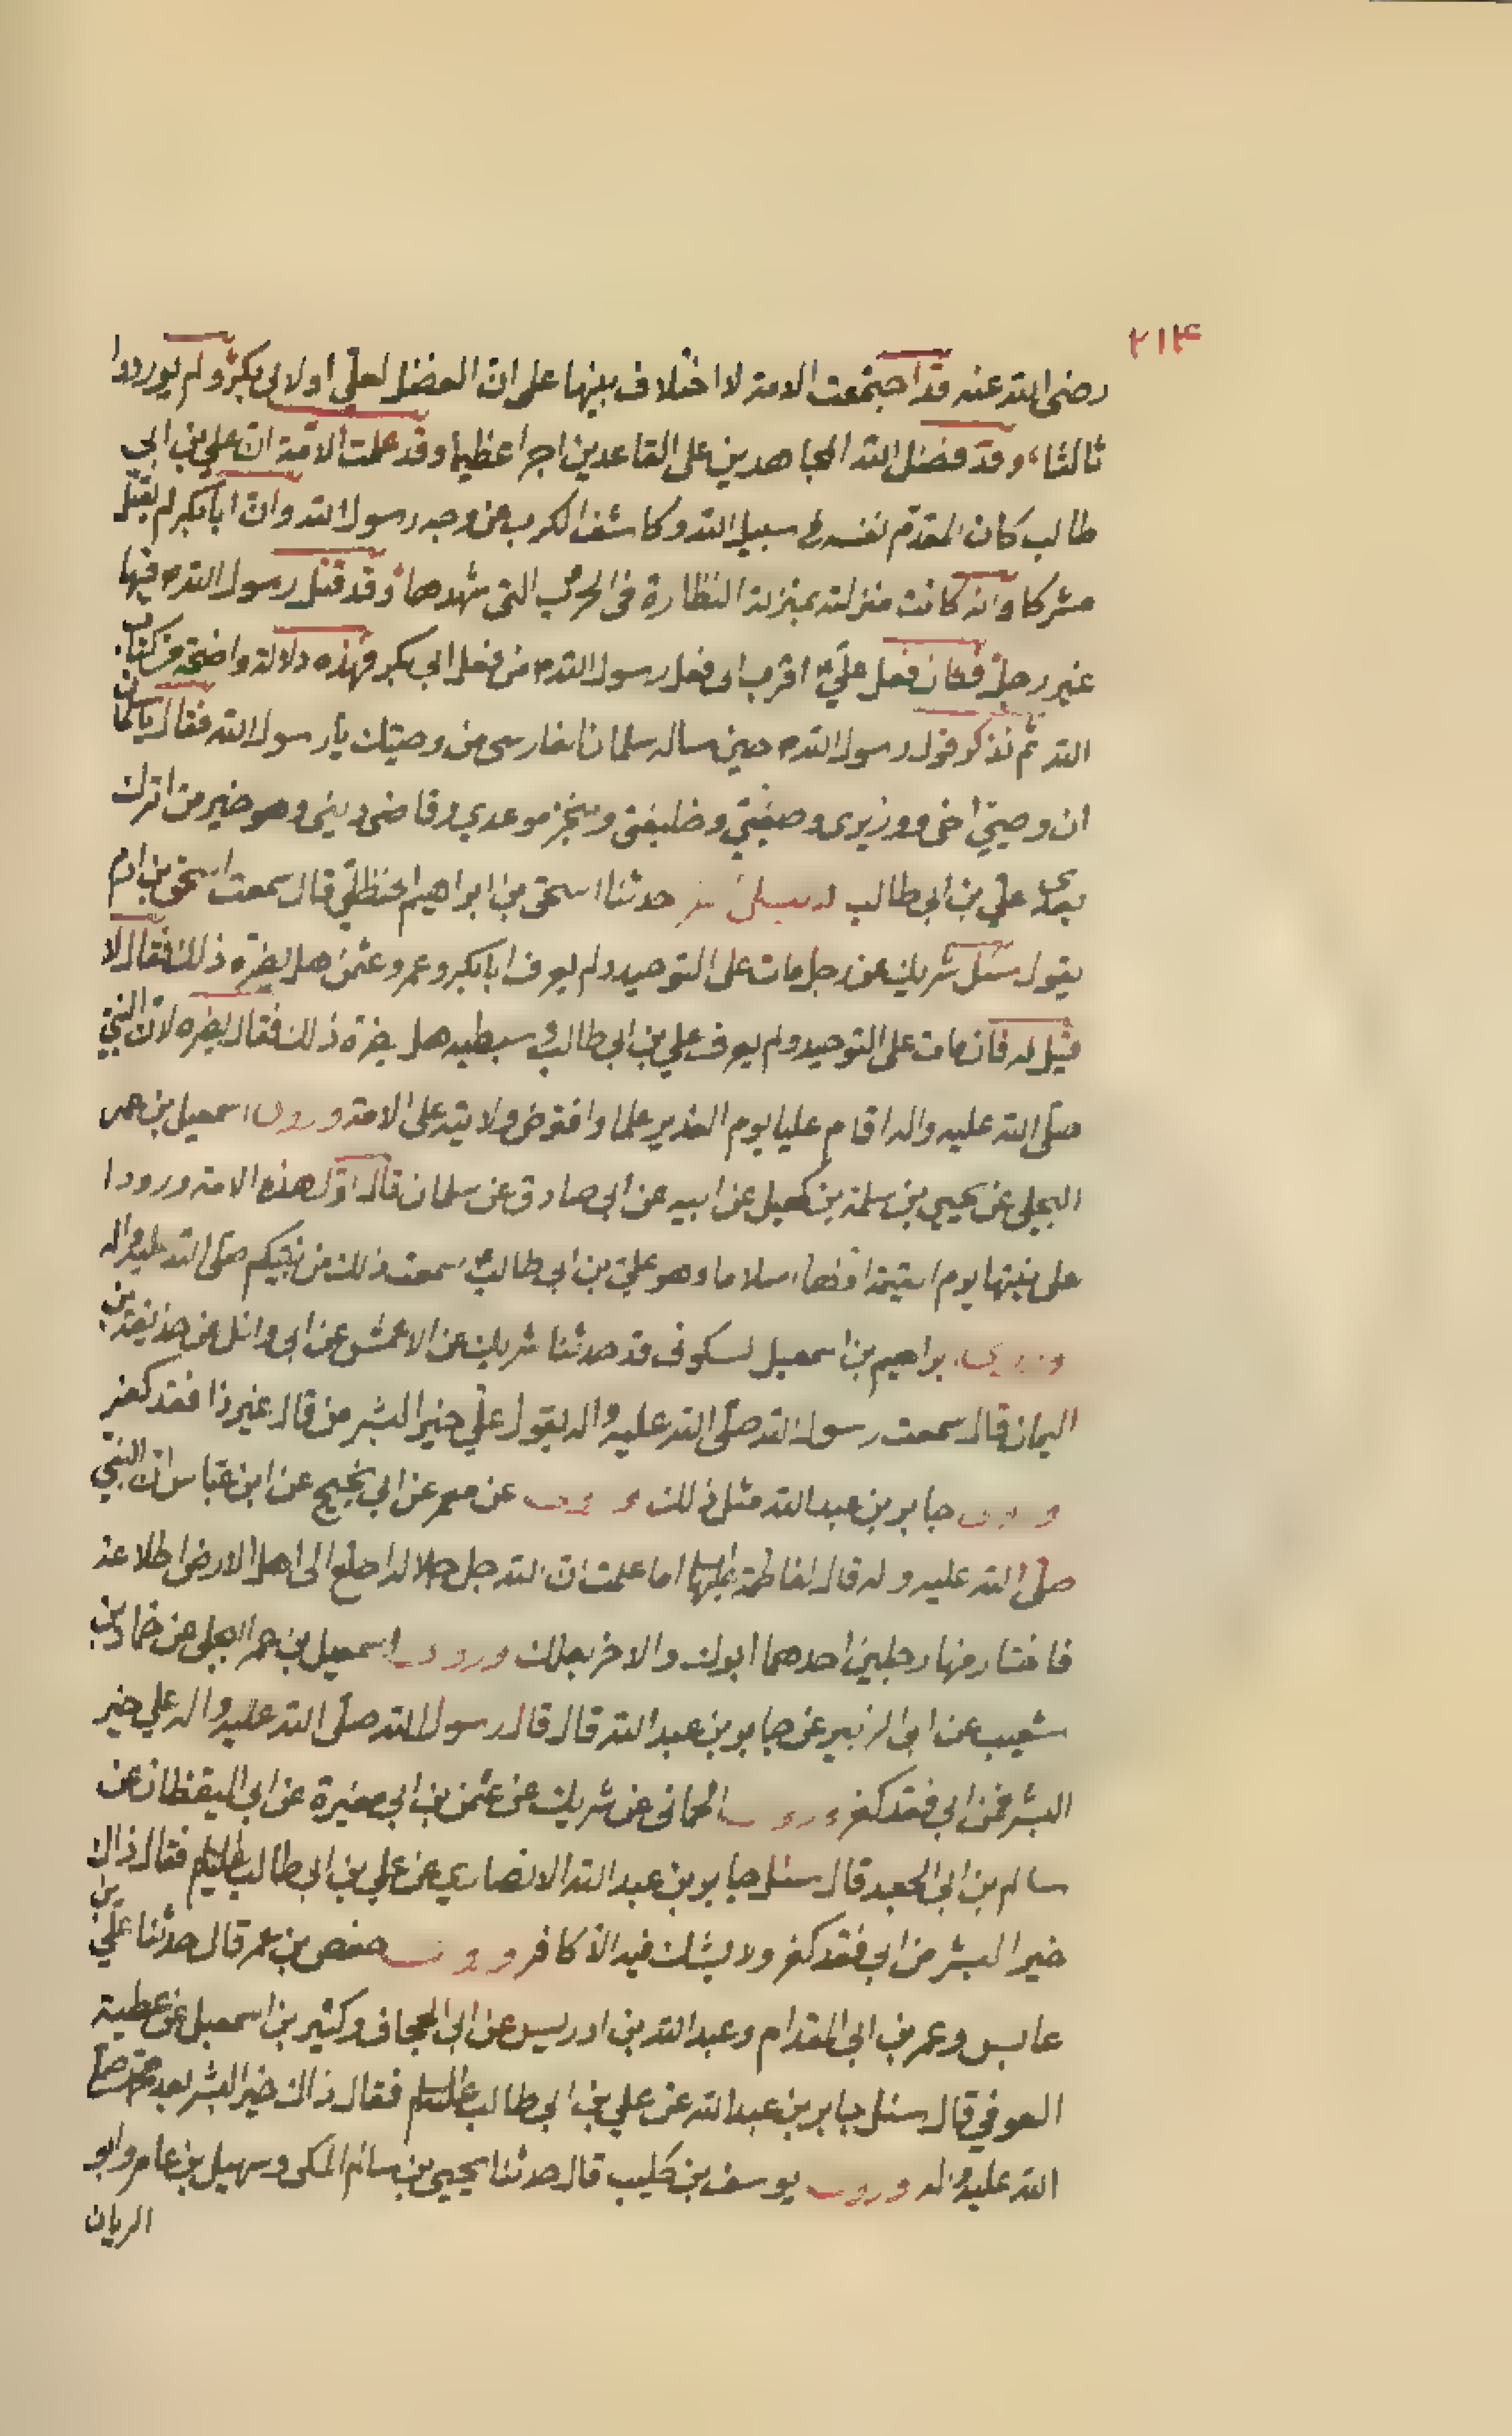 ٢١٤
رضى الله عنه وقد اجتمعت الامة لا اختلاف بينها على ان الفضل لعلي او لابى بكر ولم يوردوا
ثالثا وقد فضل الله المجاهدين على القاعدين اجرا عظيما وقد علمت الامة ان علي بن ابى
طالب كان المقدم لنفسه فى سبيل الله وكاشف الكرب عن وجه رسول الله وان ابا بكر لم يقتل
مشركا وانه كانت منزلته بمنزلة النظارة فى الحرب التى شهدها وقد قتل رسول الله ص فيها
غير رجل فكان فعل علي ع اقرب الى فعل رسول الله ص من فعل ابي بكر فهذه دلالة واضحة من كتاب
الله ثم نذكر قول رسول الله ص حين ساله سلمان الفارسى من وصيتك يا رسول الله فقال يا سلمان
ان وصيي اخى ووزيرى وصفيي وخليفتى ومنجز موعدي وقاضى دينى وهو خير من اترك
بعدى علي بن ابى طالب حدثنا اسحق بن ابراهيم الحنظلي قال سمعت اسحق بن ادم
يقول سئل شريك عن رجل مات على التوحيد ولم يعرف ابا بكر وعمر وعثمن هل يضره ذلك فقال لا
قيل له فان مات على التوحيد ولم يعرف علي بن ابى طالب و سبطيه هل يضره ذلك فقال يضره لان النبي
صلى الله عليه واله اقام عليا يوم الغدير علما وافترض ولايته على الامة وروى اسمعيل بن عمر
البجلي عن يحيى بن سلمة بن كهيل عن ابيه عن ابى صادق عن سلمان قال اول هذه الامة ورودا
على نبيها يوم القيمة اولها اسلاما وهو علي بن ابى طالب ع سمعت ذلك من نبيكم صلى الله عليه واله
وروى ابراهيم بن اسمعيل السكوفى قد حدثنا شريك عن الاعمش عن ابى وائل عن حذيفة بن
اليمان قال سمعت رسول الله صلى الله عليه واله يقول علي خير البشر من قال غير ذا فقد كفر
وروى جابر بن عبد الله مثل ذلك وروى عن معمر عن ابي نجيح عن ابن عباس ان النبي
صلى الله عليه واله قال لفاطمة عليها السلام اما علمت ان الله جل جلاله اطلع الى اهل الارض اطلاعة
فاختار منها رجلين احدهما ابوك والاخر بعلك وروى اسمعيل بن عمر البجلى عن حماد بن
شعيب عن ابى الزبير عن جابر بن عبد الله قال قال رسول الله صلى الله عليه واله علي خير
البشر فمن ابى فقد كفر وروى الحمانى عن شريك عن عثمن بن ابي مغيرة عن ابى اليقظان عن
سالم بن ابى الجعد قال سئل جابر بن عبد الله الانصاري عن علي بن ابى طالب عليه السلام فقال ذاك
خير البشر من ابى فقد كفر ولا يشك فيه الا كافر وروى حفص بن عمر قال حدثنا علي بن
عابس وعمر بن ابى المقدام وعبد الله بن ادريس عن ابى الجحاف وكثير بن اسمعيل عن عطية
العوفي قال سئل جابر بن عبد الله عن علي بن ابى طالب عليه السلام فقال ذاك خير البشر بعد محمد صلى
الله عليه واله وروى يوسف بن كليب قال حدثنا يحيى بن سالم المكى وسهيل بن عامر وابو
الريان